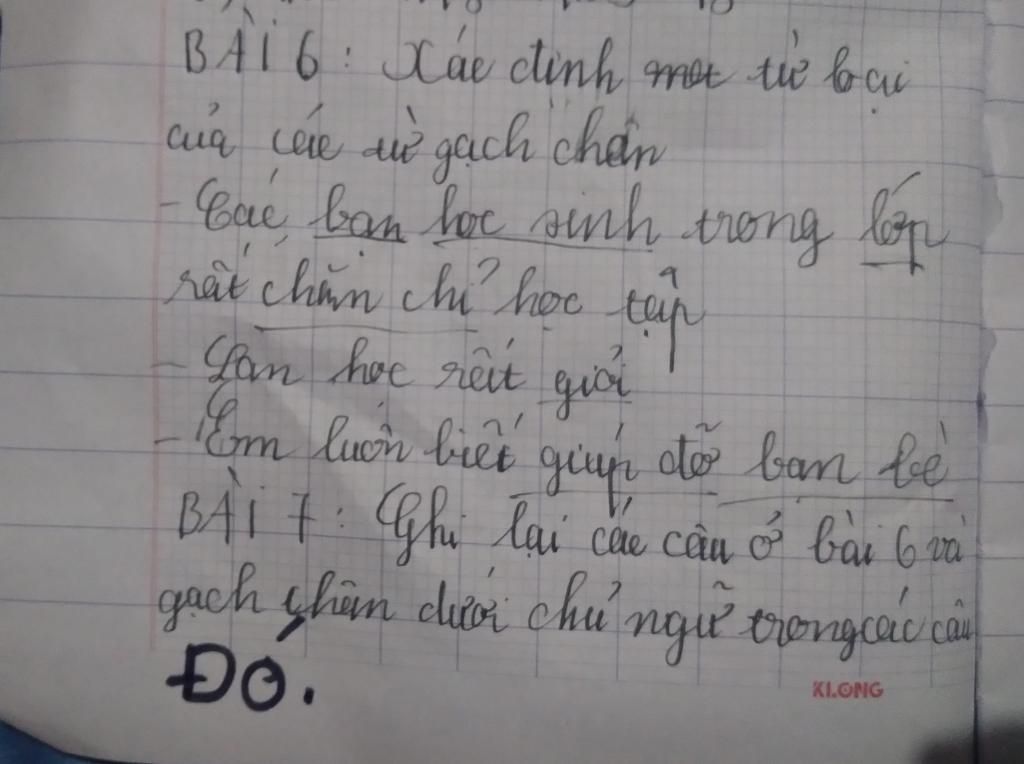 BÀI 6: Xác định một từ loại
của các từ gạch chân
- Các bạn học sinh trong lớp
rất chăm chỉ học tập
- Lan học rất giỏi
- Em luôn biết giúp đỡ bạn bè
BÀI 7: Ghi lại các câu ở bài 6 và
gạch chân dưới chủ ngữ trong các câu
ĐÓ.
KLONG